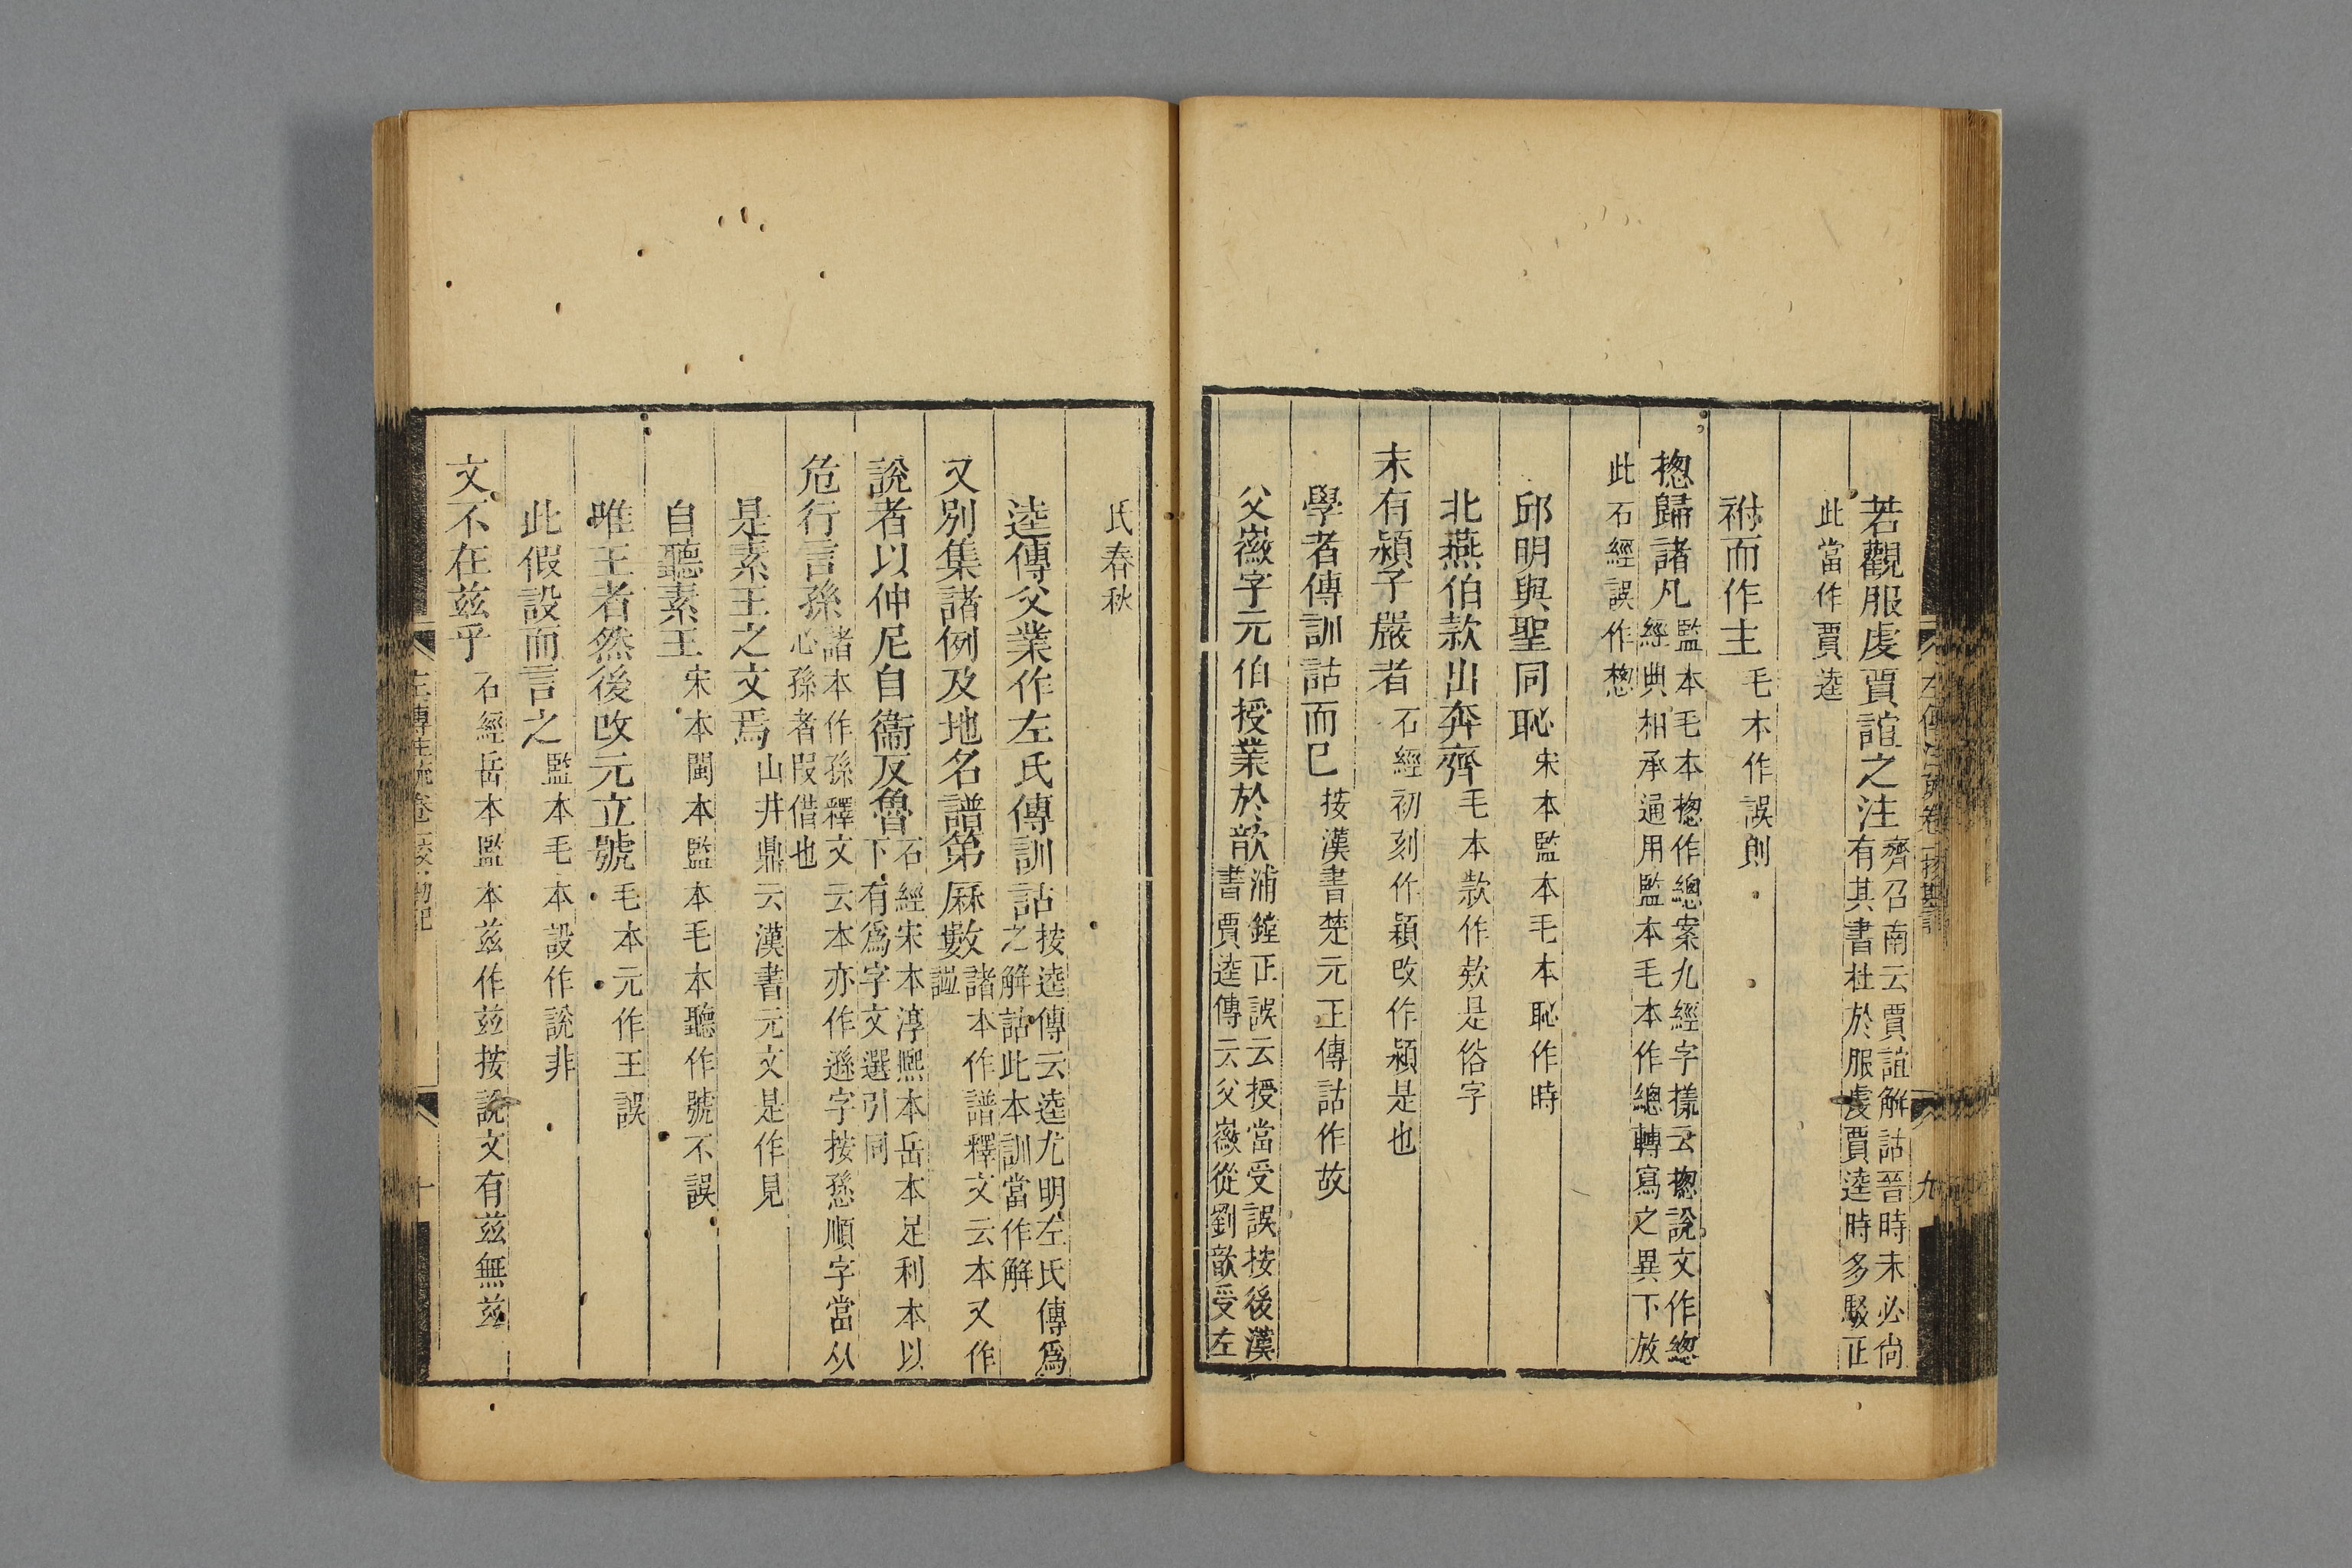 若觀服虔賈誼之注齊召南云賈誼解詁晉時未必尚有其書杜於服虔賈逵時多駁正
此當作賈逵
祔而作主毛本作誤則
揔歸諸凡監本毛本揔作總案九經字㨾云揔說文作緫經典相承通用監本毛本作總轉寫之異下放
此石經誤作㹅
邱明與聖同恥宋本監本毛本恥作時
北燕伯款出奔齊毛本款作欵是俗字
末有潁子嚴者石經初刻作穎改作潁是也
學者傳訓詁而已按漢書楚元王傳詁作故
父徽字元伯授業於歆浦鏜正誤云授當受誤按後漢書賈逵傳云父徽從劉歆受左
左傳注疏卷一挍勘記
九
氏春秋
逵傳父業作左氏傳訓詁按逵傳云逵尤明左氏傳爲之解詁此本訓當作解
又別集諸例及地名譜第厤數諸本作譜釋文云本又作諩
說者以仲尼自衞反魯石經宋本淳熙本岳本足利本以下有爲字文選引同
危行言孫諸本作孫釋文云本亦作遜字按愻順字當从心孫者叚借也
是素王之文焉山井鼎云漢書元文是作見
自聽素王宋本閩本監本毛本聽作號不誤
唯王者然後改元立號毛本元作王誤
此假設而言之監本毛本設作說非
文不在茲乎石經岳本監本茲作玆按說文有茲無玆
左傳注疏卷一挍勘記
十